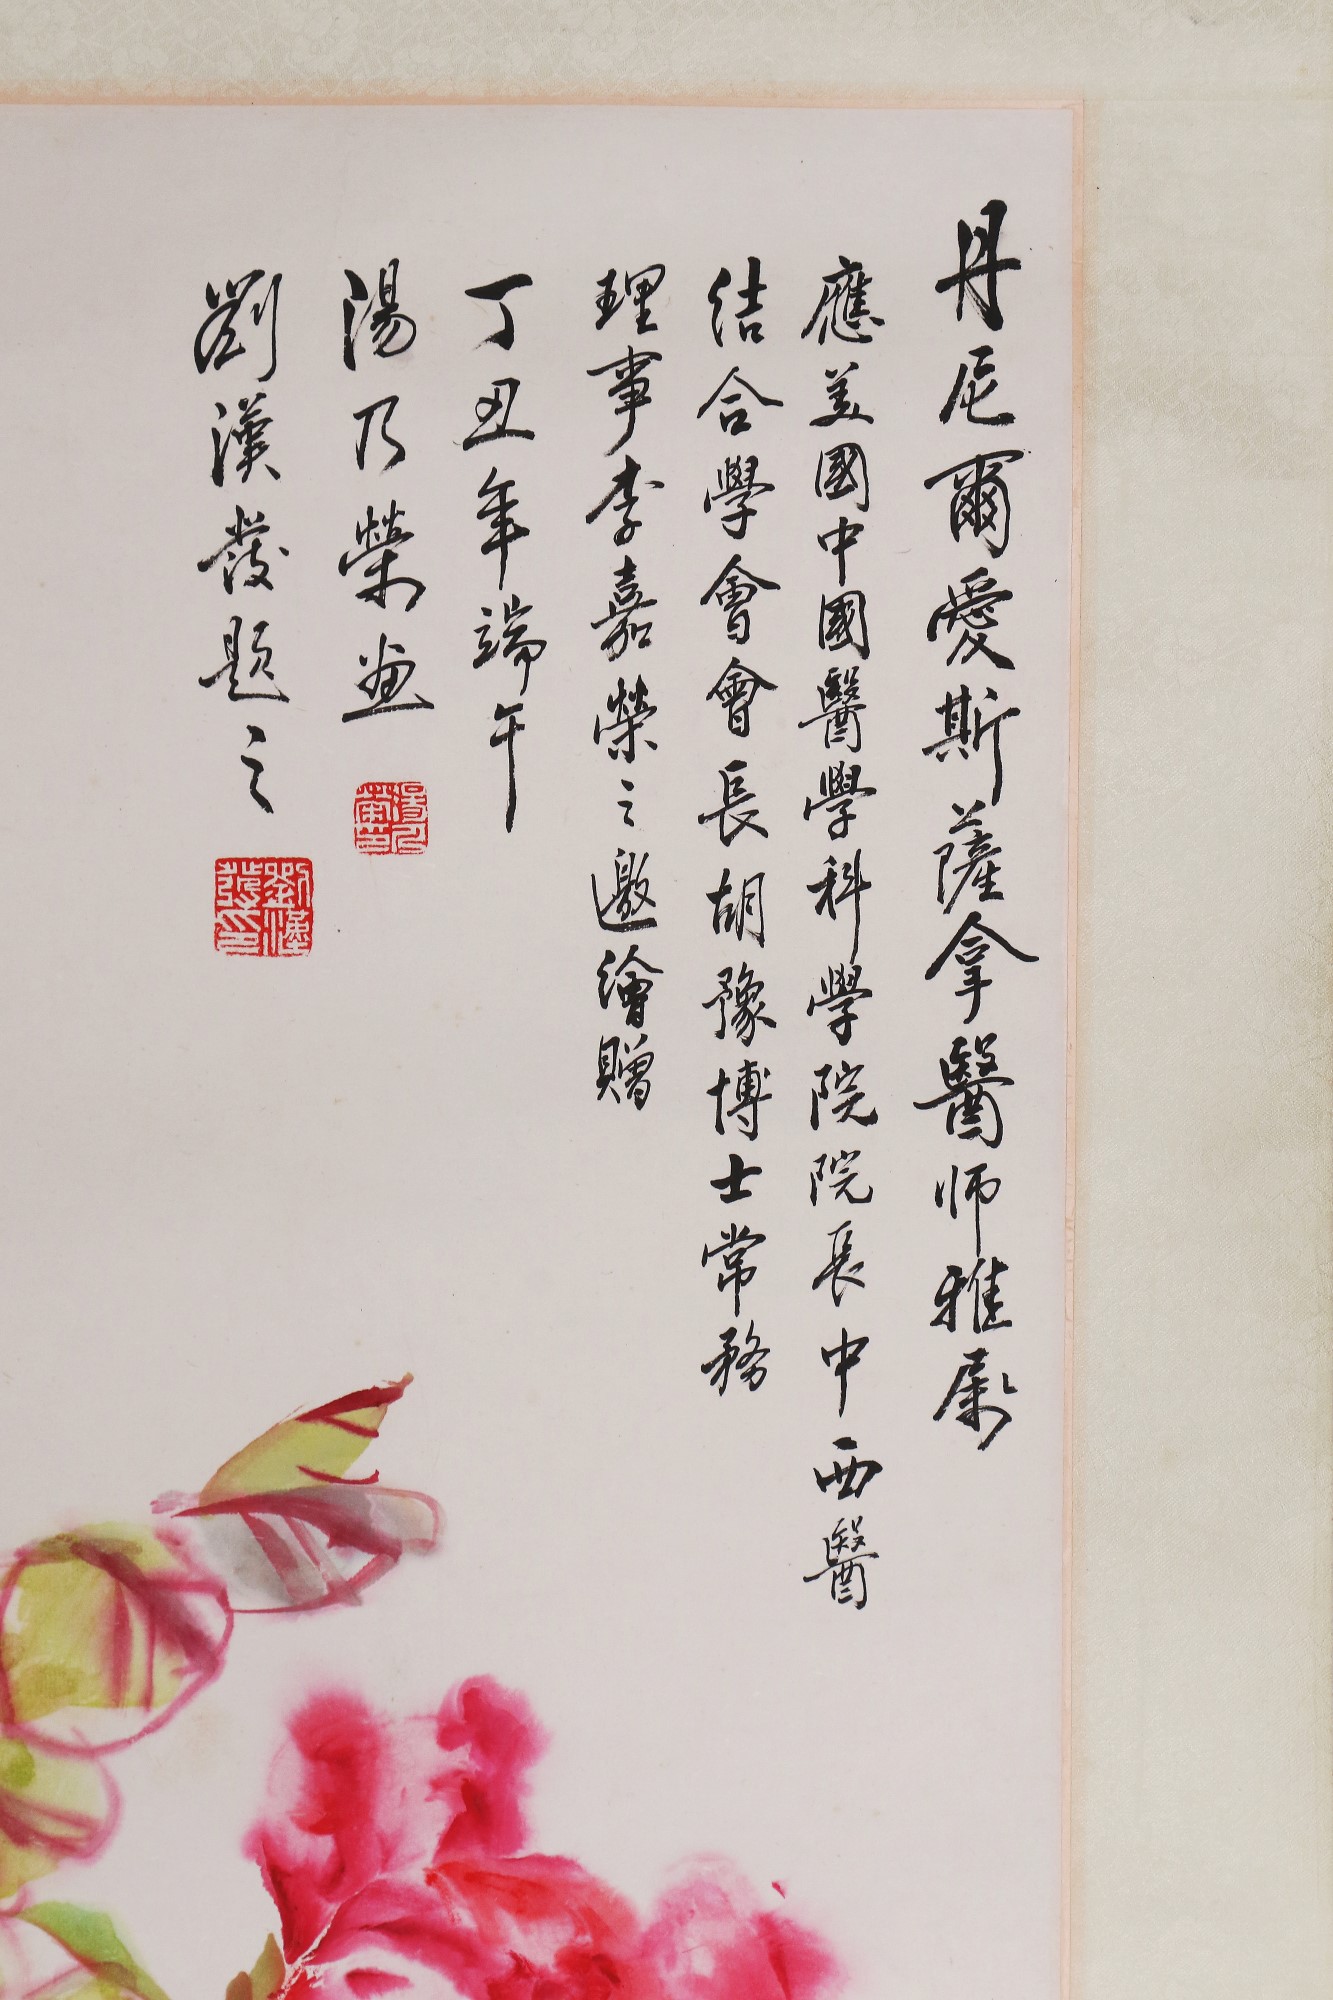 丹尼爾愛斯薩拿醫师雅屬
應美國中國醫學科學院院長中西醫
结合學會會長胡豫博士常務
理事李嘉榮之邀繪贈
丁丑年端午
湯乃榮畫
劉漢發题之
劉漢發印